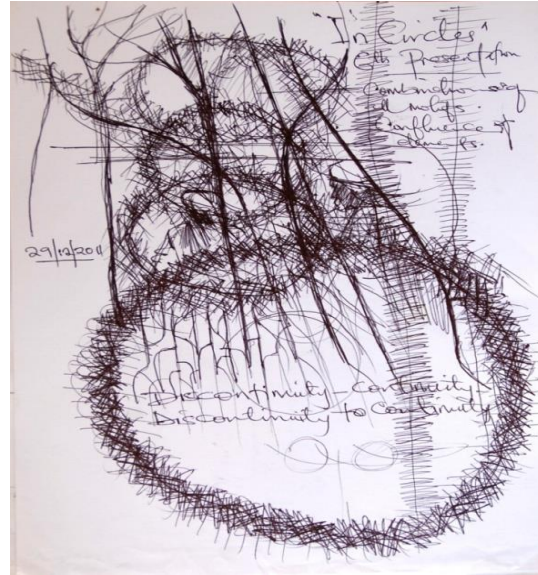 "In Circles"
6th Presentation
Combination
all motifs.
Confluence of
29/12/2011
Discontinuity - continuity
Discontinuity to Continuity